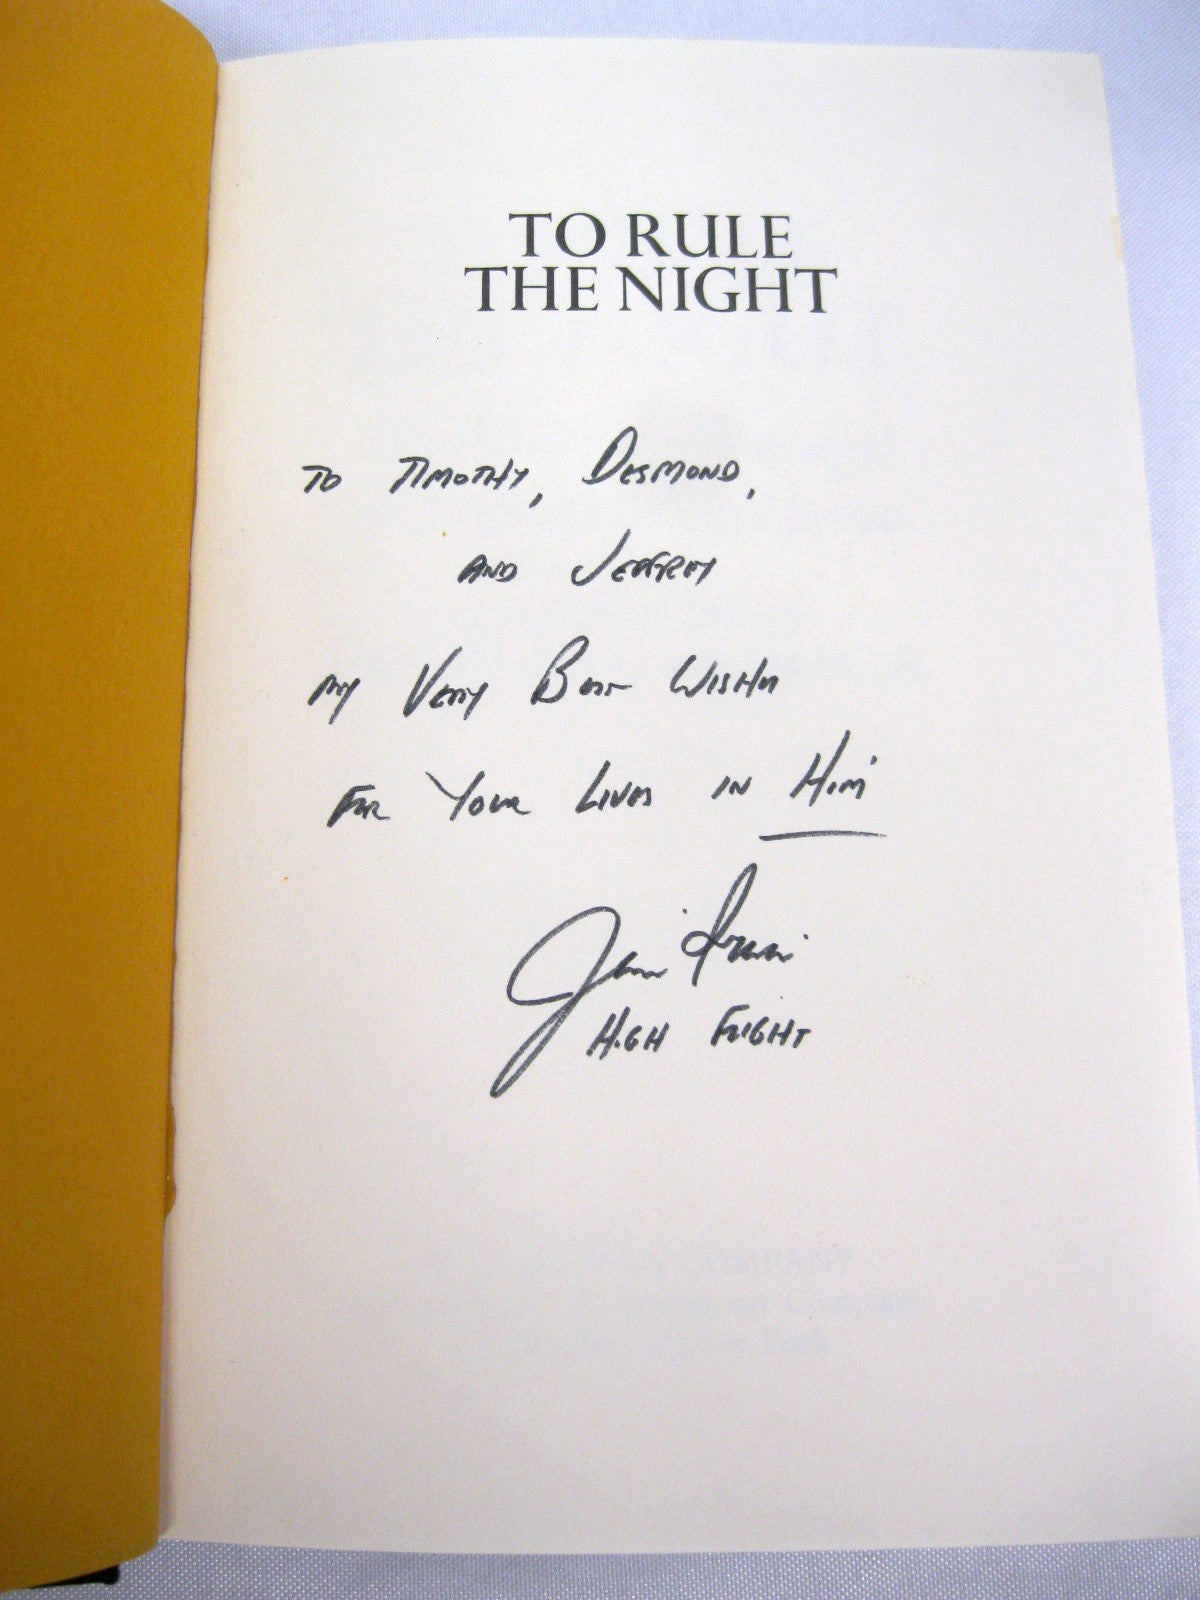 TO RULE
THE NIGHT
To Timothy, Desmond,
and Jeffrey
My Very Best Wishes
For Your Lives in Him
Jim Irwin
High Flight
COMPANY
York